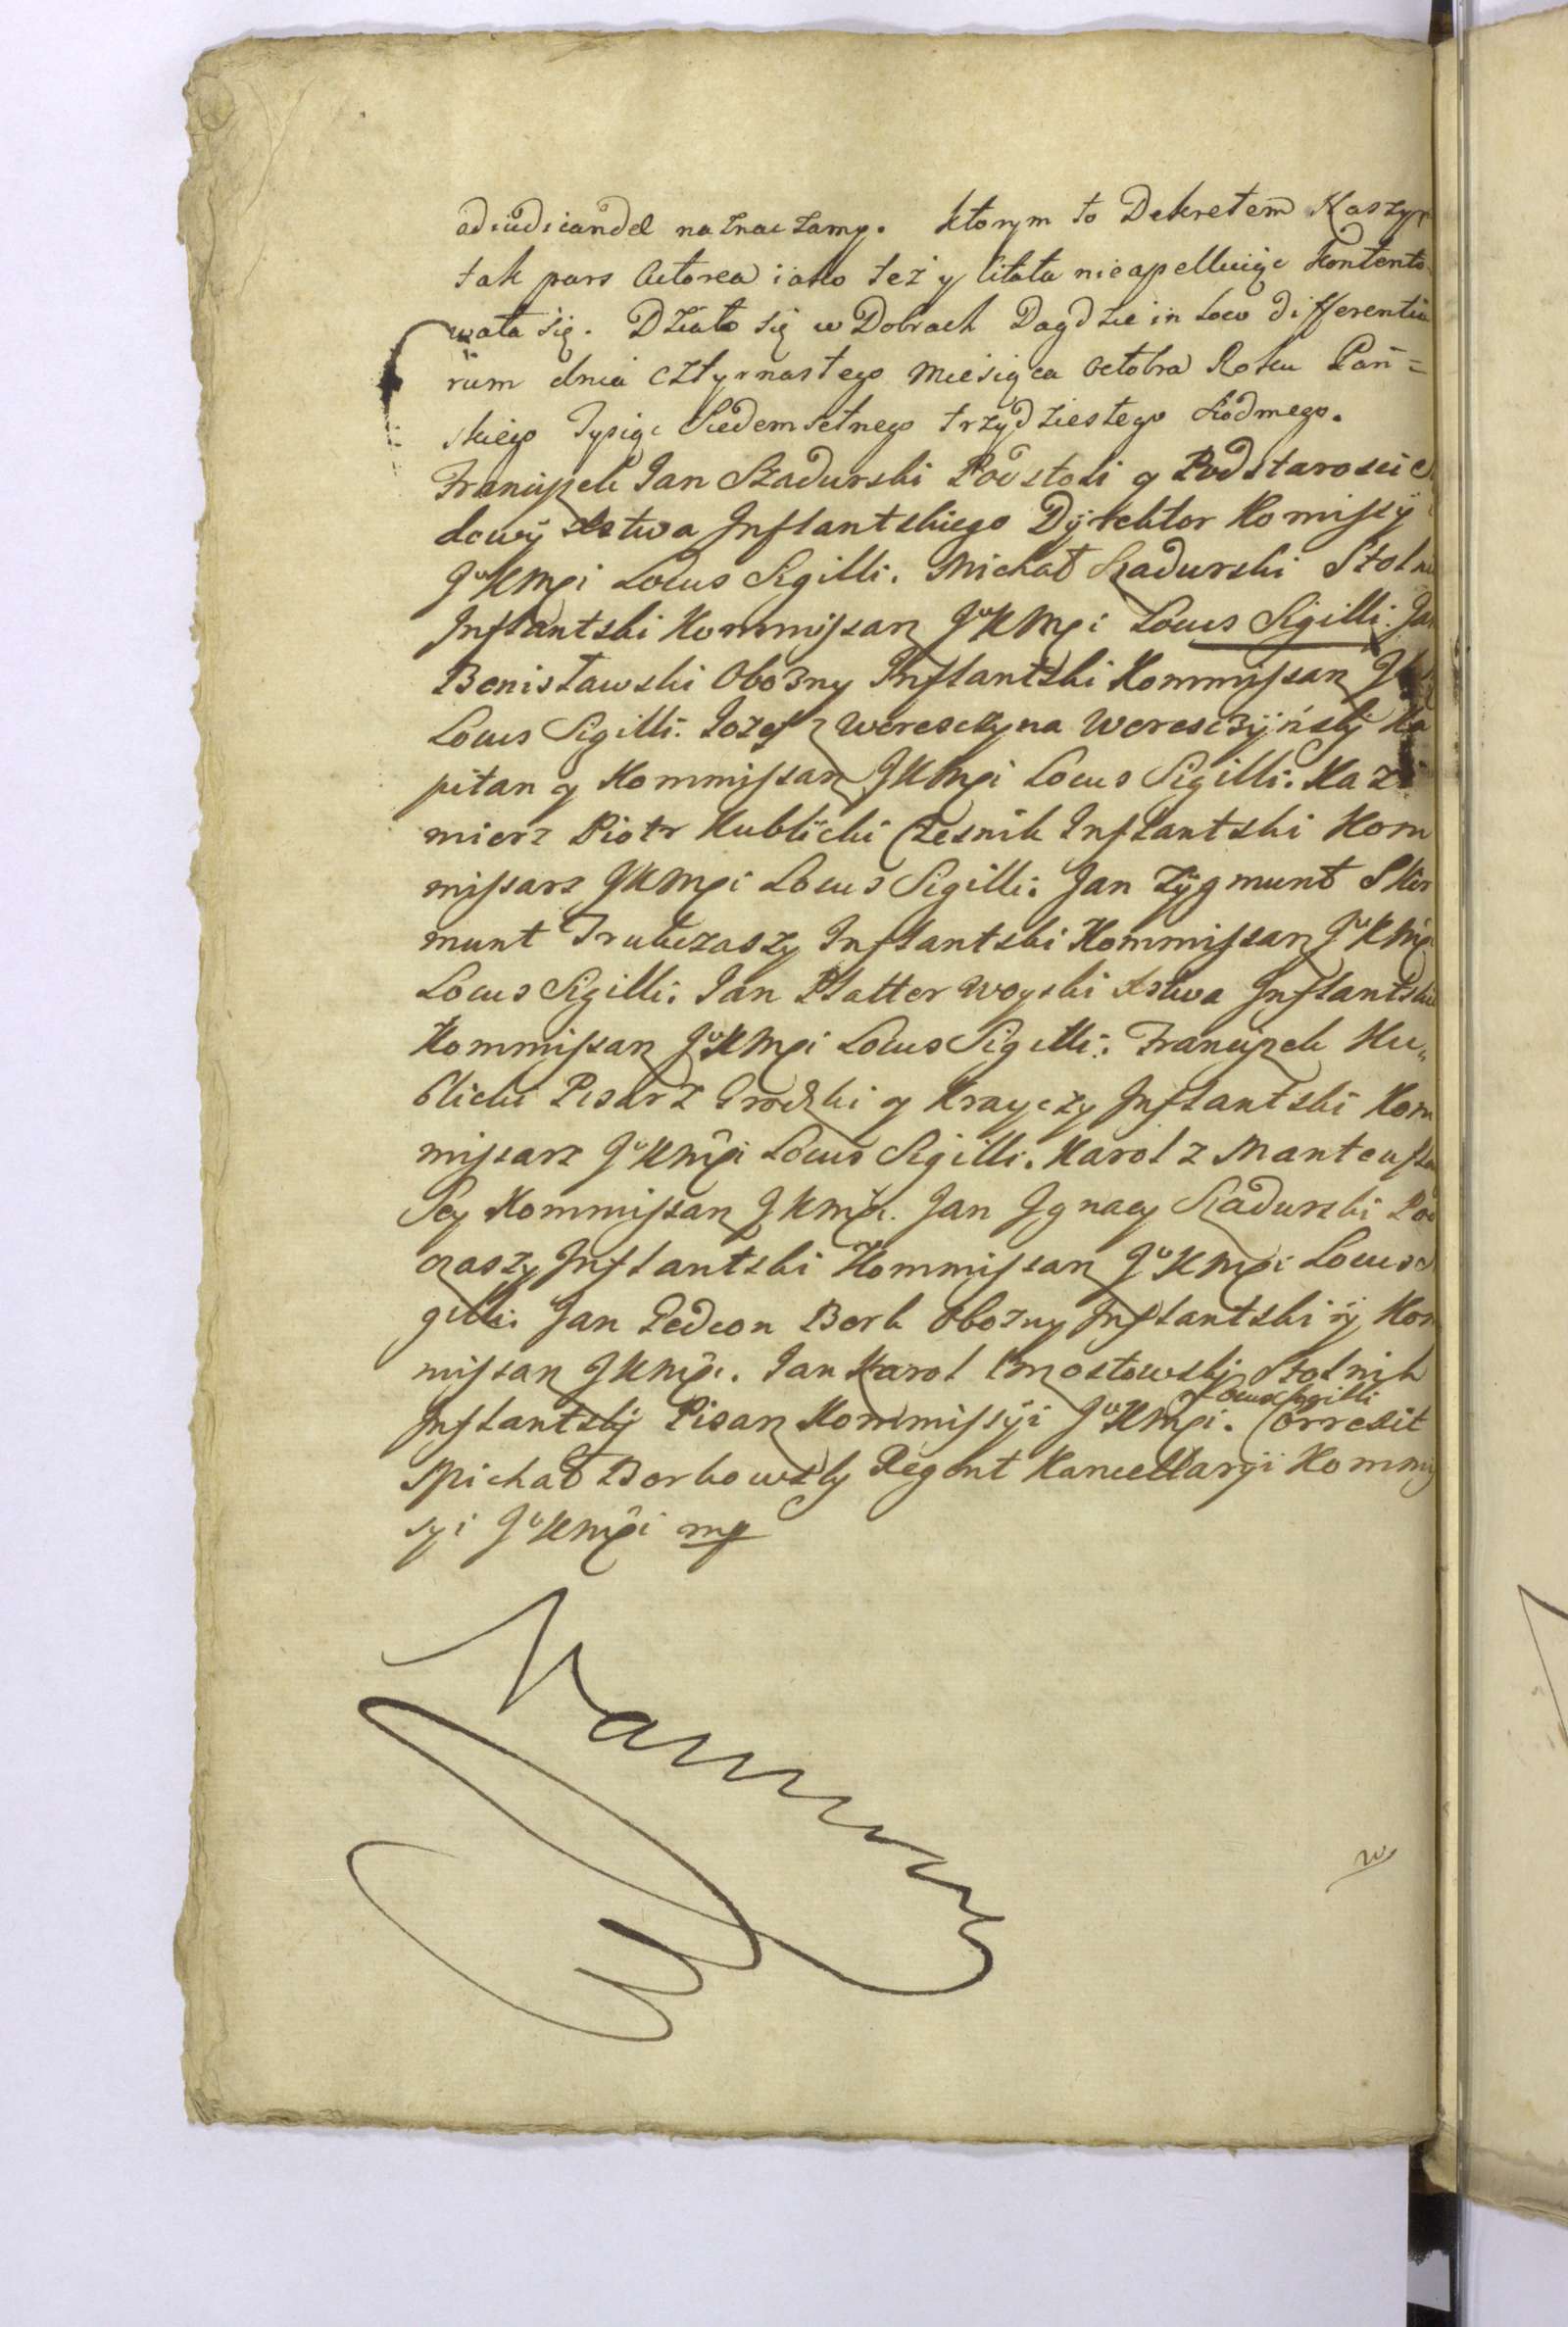 adiudicandae naznaczamy. ktorym to Dekretem Naszym
tak pars Actorea iako też y Citata nieapelluiąc kontento
wała się. Działo się w Dobrach Dagdzie in Loco differentia
rum dnia cztyrnastego Miesiąca Octobra Roku Pań=
skiego Tysiąc Siedemsetnego trzydziestego Siodmego.
Franciszek Jan Szadurski Podstoli y Podstarosci
dowy Xstwa Inflantskiego Dyrektor Komissÿ
JoKMći Locus Sigilli. Michał Szadurski Stolnik
Inflantski Kommissarz JoKMći Locus Sigilli. Jan
Benisławski Obozny Inflantski Kommissarz
Locus Sigilli. Iozef z Wereszczyna Wereszczÿńskÿ Ka
pitan y Kommissarz JKMći Locus Sigilli. Kazi
mierz Piotr Kublicki Czesnik Inflantski Kom
missarz JKMći Locus Sigilli. Jan Zÿgmunt Skir
munt Trukczaszy Inflantski Kommissarz JoKMći
Locus Sigilli. Ian Platter Woyski Xstwa Inflantskie
Kommissarz JoKMći Locus Sigilli. Franciszek Ku„
blicki Pisarz Grodzki y Krayczy Inflantski Kom
missarz JoKMći Locus Sigilli. Karol z Manteuffla
Sey Kommissarz JKMći. Jan Jgnacy Szadurski Pod
czaszy Inflantski Kommissarz JoKMći Locus Si
gilli. Jan Gedeon Bork Obozny Inflantski ÿ Kom
missarz JKMći. Ian Karol Mostowski Stolnik
Inflantskÿ Pisarz Kommissÿi JoKMći. Locus Sigilli Correxit
Michał Borkowskÿ Regent Kancellaryi Kommis
syi JoKMći mp